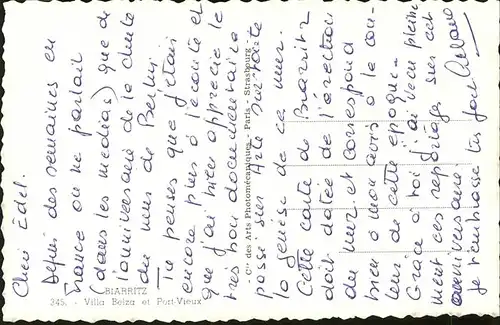 Cher Edel.
Depuis des semaines en
France on ne parlait
(dans les medias) que de
l'anniversaire de la chute
du mur de Berlin.
Tu penses que j'étais
encore plus à l'écoute et
que j'ai bien apprécié le
très bon documentaire
passé sur Arte sur toute
la genèse de ce mur.
Cette carte de Biarritz
doit datée de l'érection
du mur et correspond
bien à mon avis à la cou-
leur de cette époque.
Grace à toi j'ai vécu pleine
ment ces reportages sur cet
anniversaire.
Je t'embrasse très fort
BIARRITZ
345. - Villa Belza et Port-Vieux
- Cie des Arts Photomécaniques - Paris - Strasbourg -